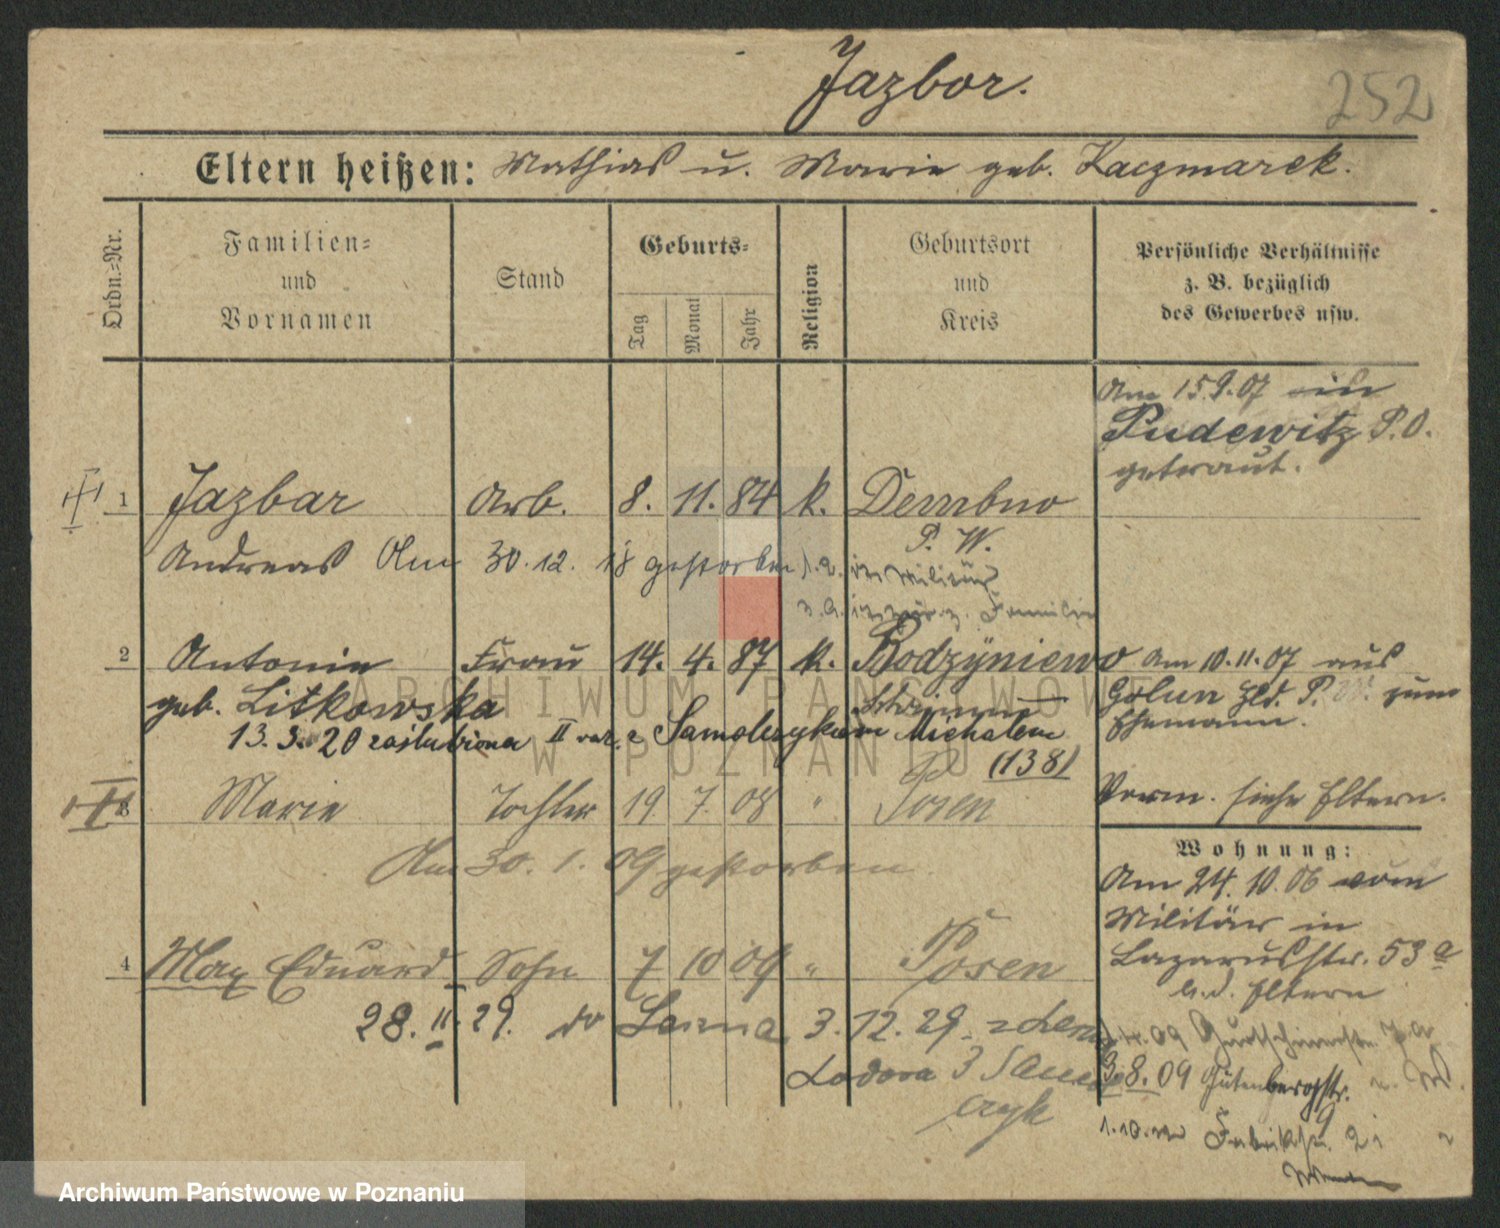 Jazbor.
252
Eltern heißen: Mathias u. Marie geb. Kaczmarek.
Ordn.=Nr.
Familien=
und
Vornamen
Stand
Geburts=
Tag
Monat
Jahr
Religion
Geburtsort
und
Kreis
Persönliche Verhältnisse
z. B. bezüglich
des Gewerbes usw.
Am 15.9.07 in
Pudewitz P.O.
getraut.
1 Jazbar Arb. 8. 11. 84 k. Dembno
P. W.
Andreas Am 30. 12. 18 gestorben
Militär
Familie
2 Antonie Frau 14. 4. 87 k. Bodzyniewo
geb. Litkowska Schrimm
Am 10.11.07 aus
Golun P. W. zum
Ehemann.
13. 3. 20 zaślubiona II raz z Samolczykiem Michałem
(138)
3 Marie Tochter 19 7. 08 " Posen
Am 30. 1. 09 gestorben.
Verm. siehe Eltern.
Wohnung:
Am 24. 10. 06 vom
Militär in
Lazarusstr. 53a
b. d. Eltern
4 Max Eduard Sohn 7 10 09 " Posen
28. II. 29. do 3. 12. 29. z
3.8.09 Gutenbergstr.
9
1.10. Fabrikstr.
ARCHIWUM PAŃSTWOWE
W POZNANIU
Archiwum Państwowe w Poznaniu